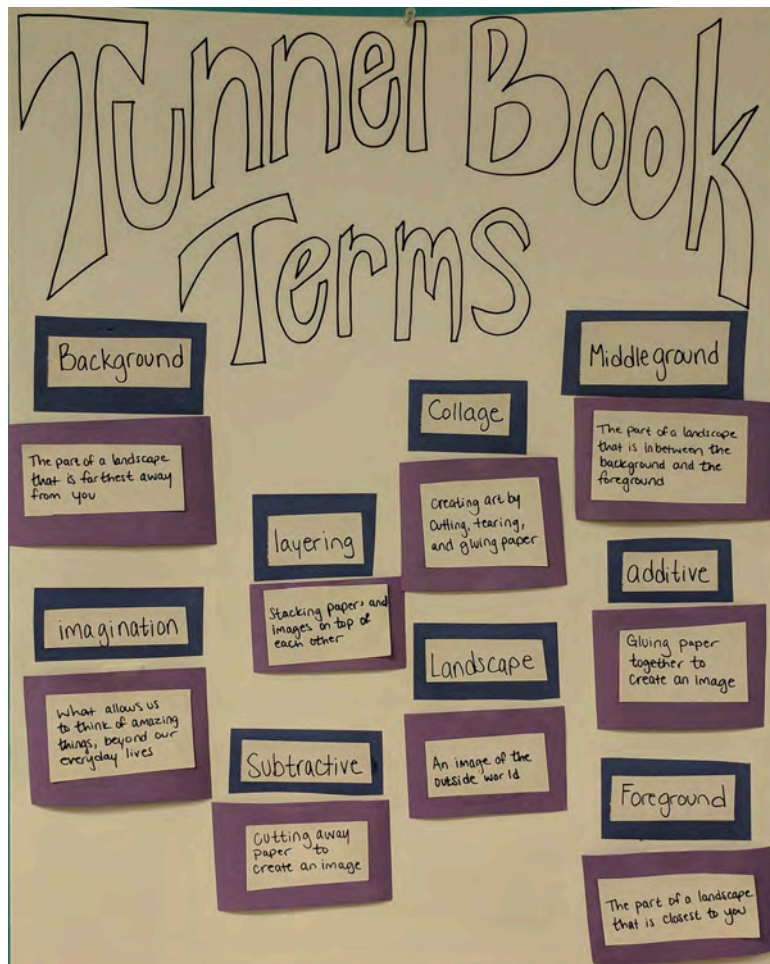 Tunnel Book
Terms
Background
The part of a landscape
that is farthest away
from you
imagination
What allows us
to think of amazing
things, beyond our
everyday lives
layering
Stacking papers and
images on top of
each other
Subtractive
Cutting away
paper to
create an image
Collage
Creating art by
cutting, tearing,
and gluing paper
Landscape
An image of the
outside world
Middleground
The part of a landscape
that is inbetween the
background and the
foreground
additive
Gluing paper
together to
create an image
Foreground
The part of a landscape
that is closest to you